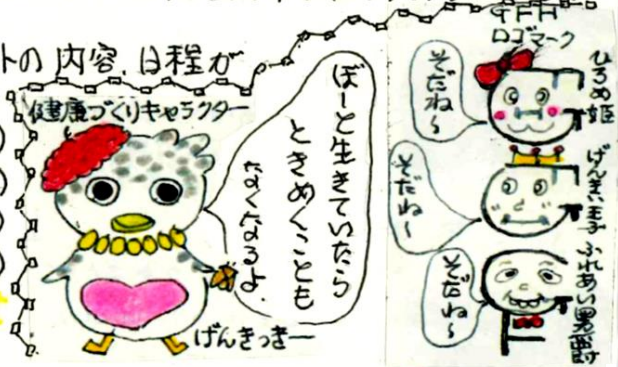 トの内容、日程が
健康づくりキャラクター
ぼーと生きていたら
ときめくことも
なくなるよ.
げんきっきー
GFH
ロゴマーク
ひろめ姫
そだね~
げんきい王子
そだね~
ふれあい男爵
そだね~